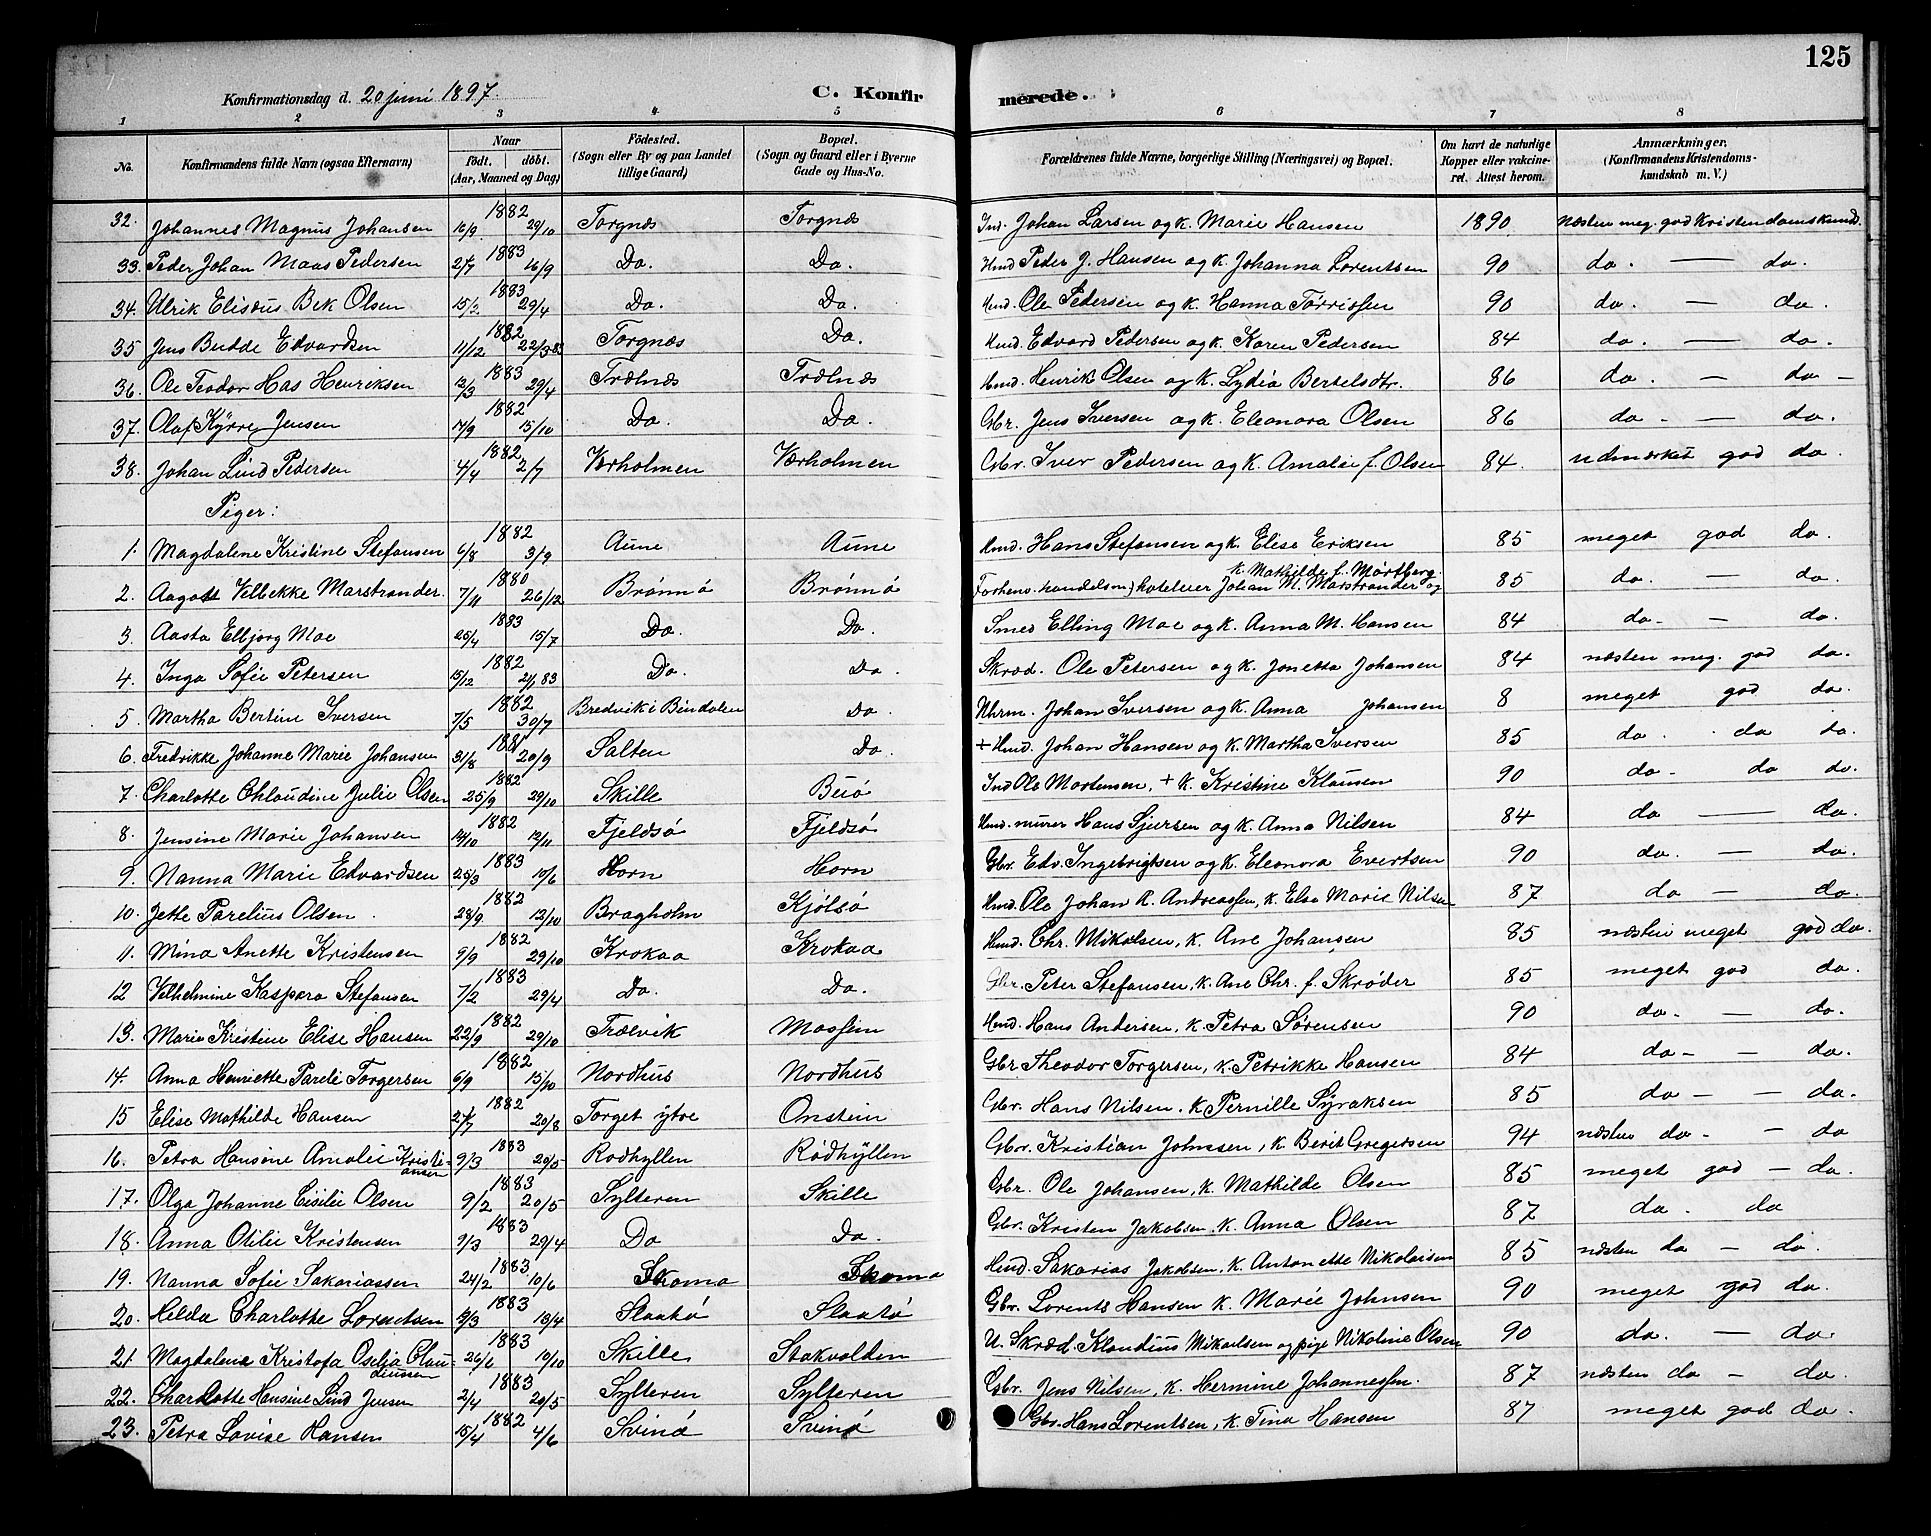 125
Konfirmationsdag d. 20 juni 1897. C. Konfirmerede.
1 2 3 4 5 6 7 8
No. Konfirmandens fulde Navn (ogsaa Efternavn) Naar født. døbt. (Aar, Maaned og Dag) Fødested. (Sogn eller By og paa Landet tillige Gaard) Bopæl. (Sogn og Gaard eller i Byerne Gade og Hus-No. Forældrenes fulde Navne, borgerlige Stilling (Næringsvei) og Bopæl. Om havt de naturlige Kopper eller vakcineret. Attest herom. Anmærkninger. (Konfirmandens Kristendomskundskab m. V.)
32. Johannes Magnus Johansen 1882 16/9 29/10 Torgnes Torgnes Ind. Johan Larsen og K. Marie Hansen 1890 Næsten meg. god Kristendomskund.
33. Peder Johan Maas Pedersen 1883 2/7 16/9 Do. Do. Hmd Peder J. Hansen og K. Johanna Lorentsen 90 do. — do.
34. Ulrik Eliseus Bek Olsen 1883 15/2 29/4 Do. Do. Hmd. Ole Pedersen og K. Hanna Torrissen 90 do. — do.
35 Jens Budde Edvardsen 1882 11/12 22/3 83 Torgnes Do. Hmd. Edvard Pedersen og K. Karen Pedersen 84 do. — do.
36. Ole Teodor Has Henriksen 1883 12/3 29/4 Trælnes Trælnes Hmd. Henrik Olsen og K. Lydia Bertelsdtr. 86 do. — do —
37. Olaf Kyrre Jensen 1882 17/9 15/10 Do. Do. Gbr. Jens Iversen og K. Eleonora Olsen 86 do - — do.
38. Johan Lind Pedersen 1882 4/4 2/7 Værholmen Værholmen Gbr. Iver Pedersen og K. Amalie f. Olsen 84. udmærket god do.
Piger:
1. Magdalene Kristine Stefansen 1882 6/8 3/9 Aune Aune Hmd. Hans Stefansen og K. Elise Eriksen 85 meget god do.
2. Aagot Velbekke Marstrander 1880 7/11 26/12 Brønnø Brønnø Forhenv. handelsm) hoteleier Johan M. Marstrander og K. Mathilde f. Mørtberg. 85 do. — do.
3. Aasta Elbjorg Moe 1883 25/4 15/7 Do. Do. Smed Elling Moe og K. Anna M. Hansen 84 do - — do.
4. Inga Sofie Petersen 1882 15/12 2/1 83 Do. Do. Skræd. Ole Petersen og K. Jonetta Johansen 84 næsten meg. god do.
5 Martha Bertine Iversen 1882 7/5 30/7 Bredvik i Bindalen Do. Johan Iversen og K. Anna Johansen 8 meget god do.
6. Fredrikke Johanne Marie Johansen 1881 31/8 20/9 Salten Do. + Hmd. Johan Hansen og K. Martha Iversen 85 do. do do.
7. Charlotte Chlaudine Julie Olsen 1882 25/9 29/10 Skille Buø Ind Ole Mortensen, + K. Kristine Klausen 90 do - do do.
8. Jensine Marie Johansen 1882 14/10 12/11 Fjeldsø Fjeldsø Hmd. murer Hans Sjursen og K. Anna Nilsen 84 do — do.
9. Nanna Marie Edvardsen 1883 25/3 10/6 Horn Horn Gbr. Edv. Ingebrigtsen og K. Eleonora Evertsen 90 do. — do.
10. Jette Parelius Olsen 1882 28/9 12/10 Bragholm Kjølsø Hmd. Ole Johan R. Andreassen, K. Else Marie Nilsen 87 do — do.
11. Mina Anette Kristensen 1882 9/9 29/10 Krokaa Krokaa Hmd. Chr. Mikalsen, K. Ane Johansen 85 næsten meget god do.
12 Velhelmine Kaspara Stefansen 1883 7/2 29/4 Do. Do. Gbr. Peter Stefansen, K. Ane Chr. f. Skrøder 85 meget god do.
13. Marie Kristine Elise Hansen 1882 22/9 29/10 Trælvik Mossem Hmd. Hans Andersen, K. Petra Sørensen 90 do. — do.
14. Anna Henriette Pareli Torgersen 1882 6/9 15/10 Nordhus Nordhus Gbr Theodor Torgersen, K. Petrikke Hansen 84 do - — do.
15 Elise Mathilde Hansen 1882 27/7 20/8 Torget ytre Onstein Gbr. Hans Nilsen, K. Pernille Syraksen 85 do - — do.
16. Petra Hansine Amalie Kristiansen 1883 9/3 20/5 Rødhyllen Rødhyllen Gbr. Kristian Johnssen, K. Berit Gregersen 94 næsten do - — do
17. Olga Johanne Cisilie Olsen 1883 9/2 20/5 Sylteren Skille Gbr. Ole Johansen, K. Mathilde Olsen 85 meget god — do.
18. Anna Otilie Kristensen 1883 9/3 29/4 Do Do. Gbr. Kristen Jakobsen, K. Anna Olsen 87 do. do
19. Nanna Sofie Sakariassen 1883 24/2 10/6 Skomo Skomo Hmd. Sakarias Jakobsen, K. Antonette Nikolaisen 85 næsten do — do.
20. Hilda Charlotte Lorentsen 1883 9/3 18/4 Slaatø Slaatø Gbr. Lorents Hansen K. Marie Johnsen 90 meget god do.
21. Magdalena Kristofa Oselja Claudiussen 1883 26/6 10/10 Skille Stakvolden U. Skræd. Klaudius Mikaelsen og pige Nikoline Olsen 90 do. — do.
22. Charlotte Hansine Lind Jensen 1883 2/4 20/5 Sylteren Sylteren Gbr. Jens Nilsen, K. Hermine Johannessen. 87 næsten do — do.
23. Petra Lovise Hansen 1882 15/4 4/6 Svinø Svinø Gbr. Hans Lorentsen, K. Tina Hansen 87 meget god do.